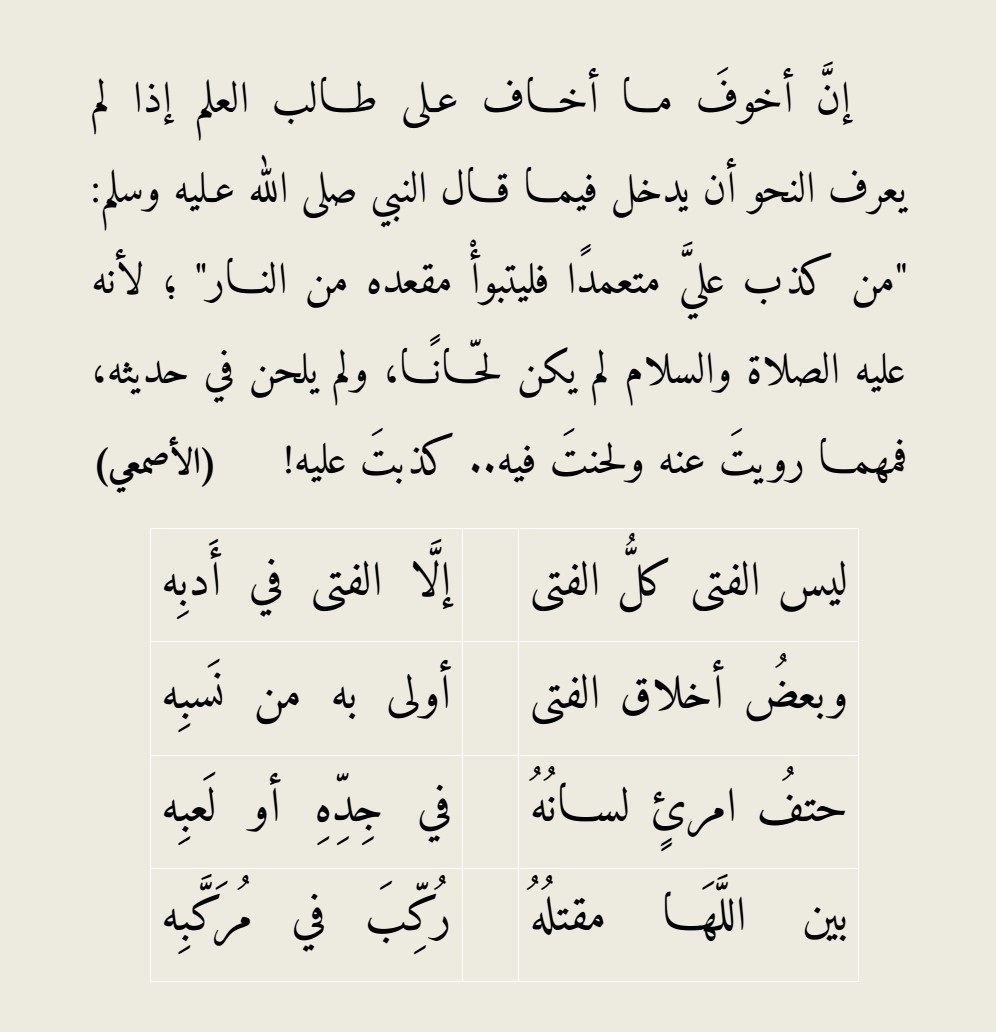 إنَّ أخوفَ ما أخاف على طالب العلم إذا لم
يعرف النحو أن يدخل فيما قال النبي صلى الله عليه وسلم:
"من كذب عليَّ متعمدًا فليتبوأْ مقعده من النار" ؛ لأنه
عليه الصلاة والسلام لم يكن لحّانًا، ولم يلحن في حديثه،
فمهما رويتَ عنه ولحنتَ فيه.. كذبتَ عليه! (الأصمعي)
ليس الفتى كلُّ الفتى إلَّا الفتى في أَدبِه
وبعضُ أخلاق الفتى أولى به من نَسبِه
حتفُ امرئٍ لسانُهُ في جِدِّهِ أو لَعبِه
بين اللَّهَا مقتلُهُ رُكِّبَ في مُرَكَّبِه